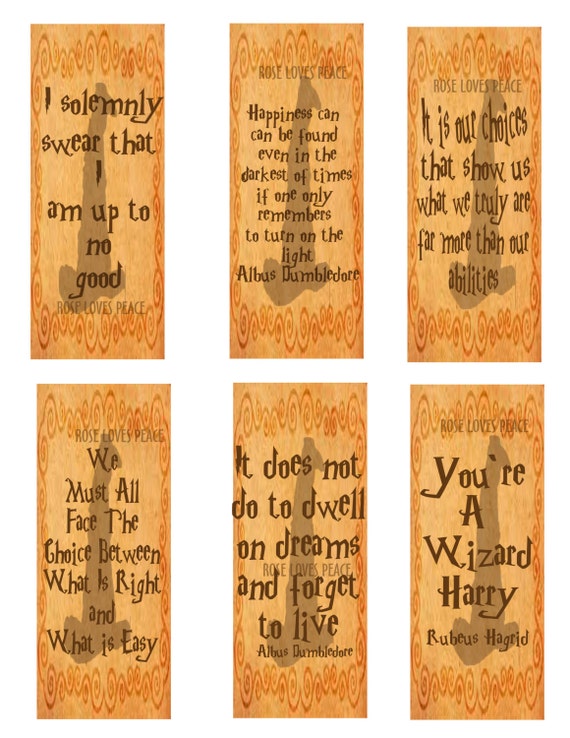 I solemnly
swear that
I
am up to
no
good
ROSE LOVES PEACE
ROSE LOVES PEACE
Happiness can
can be found
even in the
darkest of times
if one only
remembers
to turn on the
light
Albus Dumbledore
ROSE LOVES PEACE
It is our choices
that show us
what we truly are
far more than our
abilities
ROSE LOVES PEACE
We
Must All
Face The
Choice Between
What Is Right
and
What is Easy
It does not
do to dwell
on dreams
ROSE LOVES PEACE
and forget
to live
Albus Dumbledore
ROSE LOVES PEACE
You`re
A
Wizard
Harry
Rubeus Hagrid